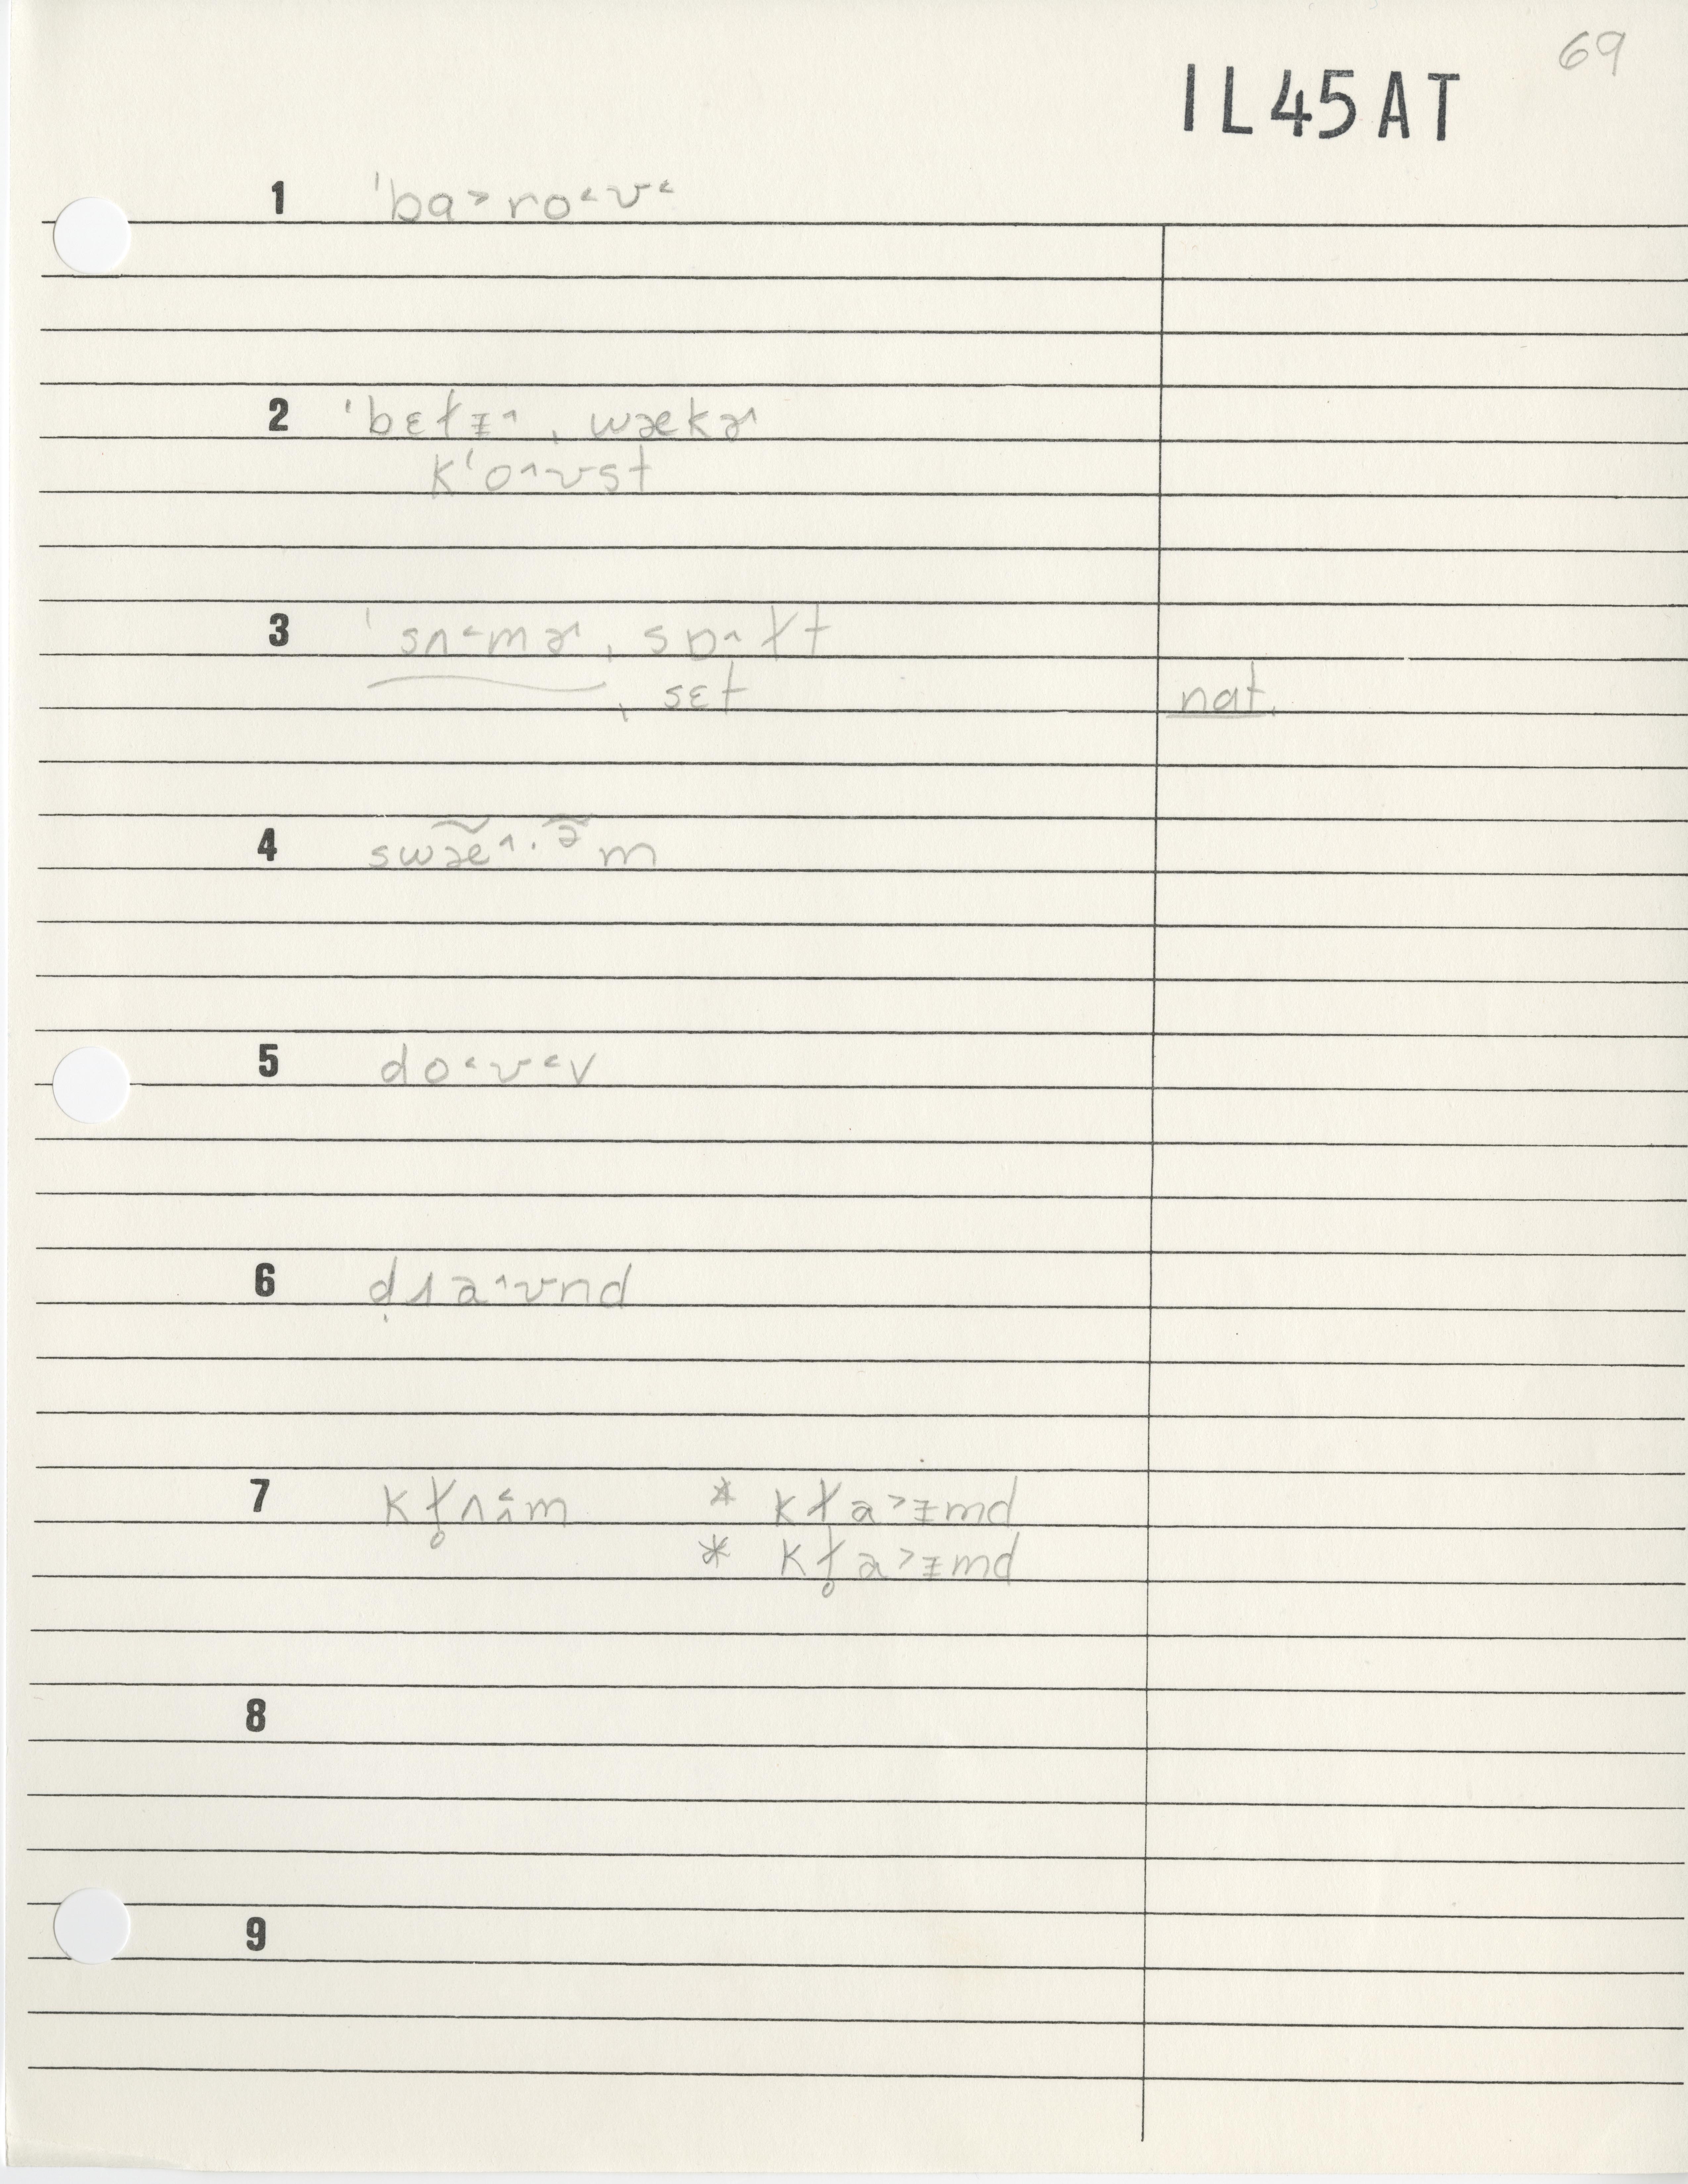 69
1L45AT
1 ˈbɑ˃ro˂ʊ˂
2 ˈbɛɫɪ̵˄, wækɚ
kˈo˄ʊst
3 ˈsʌ˂mɚ, sɒ˄ɫt
, sɛt nat.
4 swæ̃˄·ᵊ̃m
5 do˂ʊ˂v
6 d̩ɹa˄ʊnd
7 kɫ̥ʌi̭˂m * kɫa˃ɪ̵md
* kɫ̥a˃ɪ̵md
8
9